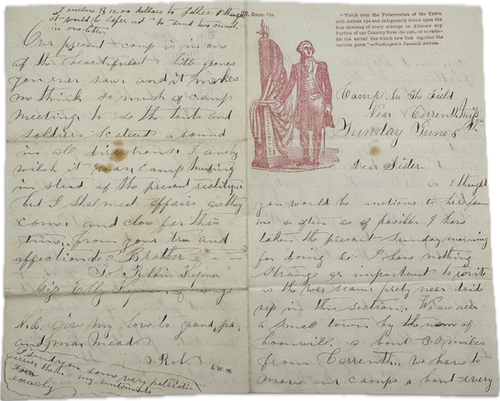 Camp In The Field
Near Correnth Miss
Sunday June 8
Dear Sister
as I thought
you would be anctions to hear from
me as often as posibal I have
taken the present Sunday morning
for doing so I have nothing
Strange or important to write
as the war seams prety near dried
up in this section. We are near
a small town by the name of
boonvill. a bout 30 miles
from Correnth. we have to
move our camps a bout every
I enclose $10.00 dollars to father I thought
it would be safer not to send too much
in one letter
Our present camp is in one
of the beautifulest little groves
you ever saw and it makes
me think so much of camp
meeting to see the tents and
soldiers scaterd a round
in all directions I only
wish it was a camp meeting
in stead of the present
but I shal meet affairs as they
come and close for this
time. from your true and
affectionate Brother
To
Miss
N.B. give my love to grand pa
and ma Mead
Rob
L.W.M.
I send you some very
exactly
"Watch over the Preservation of the Union
with jealous eye and indignantly frown upon the
first dawning of every attempt to Alienate any
Portion of our Country from the rest, or to enfee-
ble the sacred ties which now link together the
various parts."—Washington's Farewell Address.